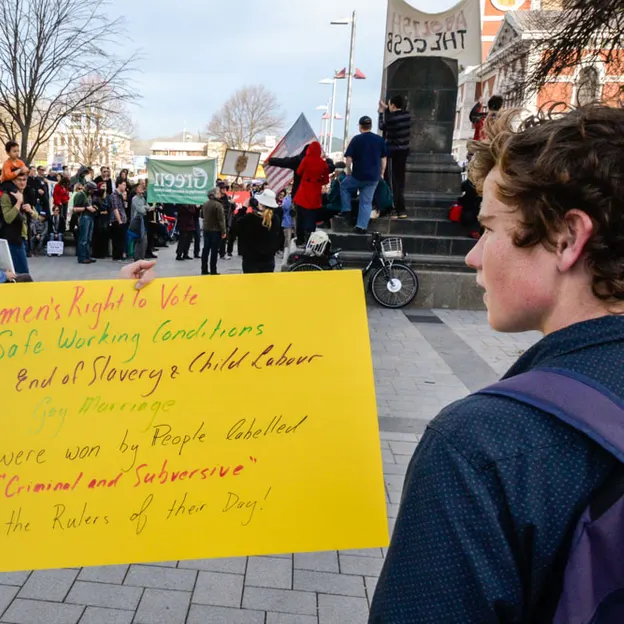 ABOLISH
THE GCSB
Green
men's Right to Vote
Safe Working Conditions
End of Slavery & Child Labour
Gay Marriage
were won by People labelled
"Criminal and Subversive"
the Rulers of their Day!